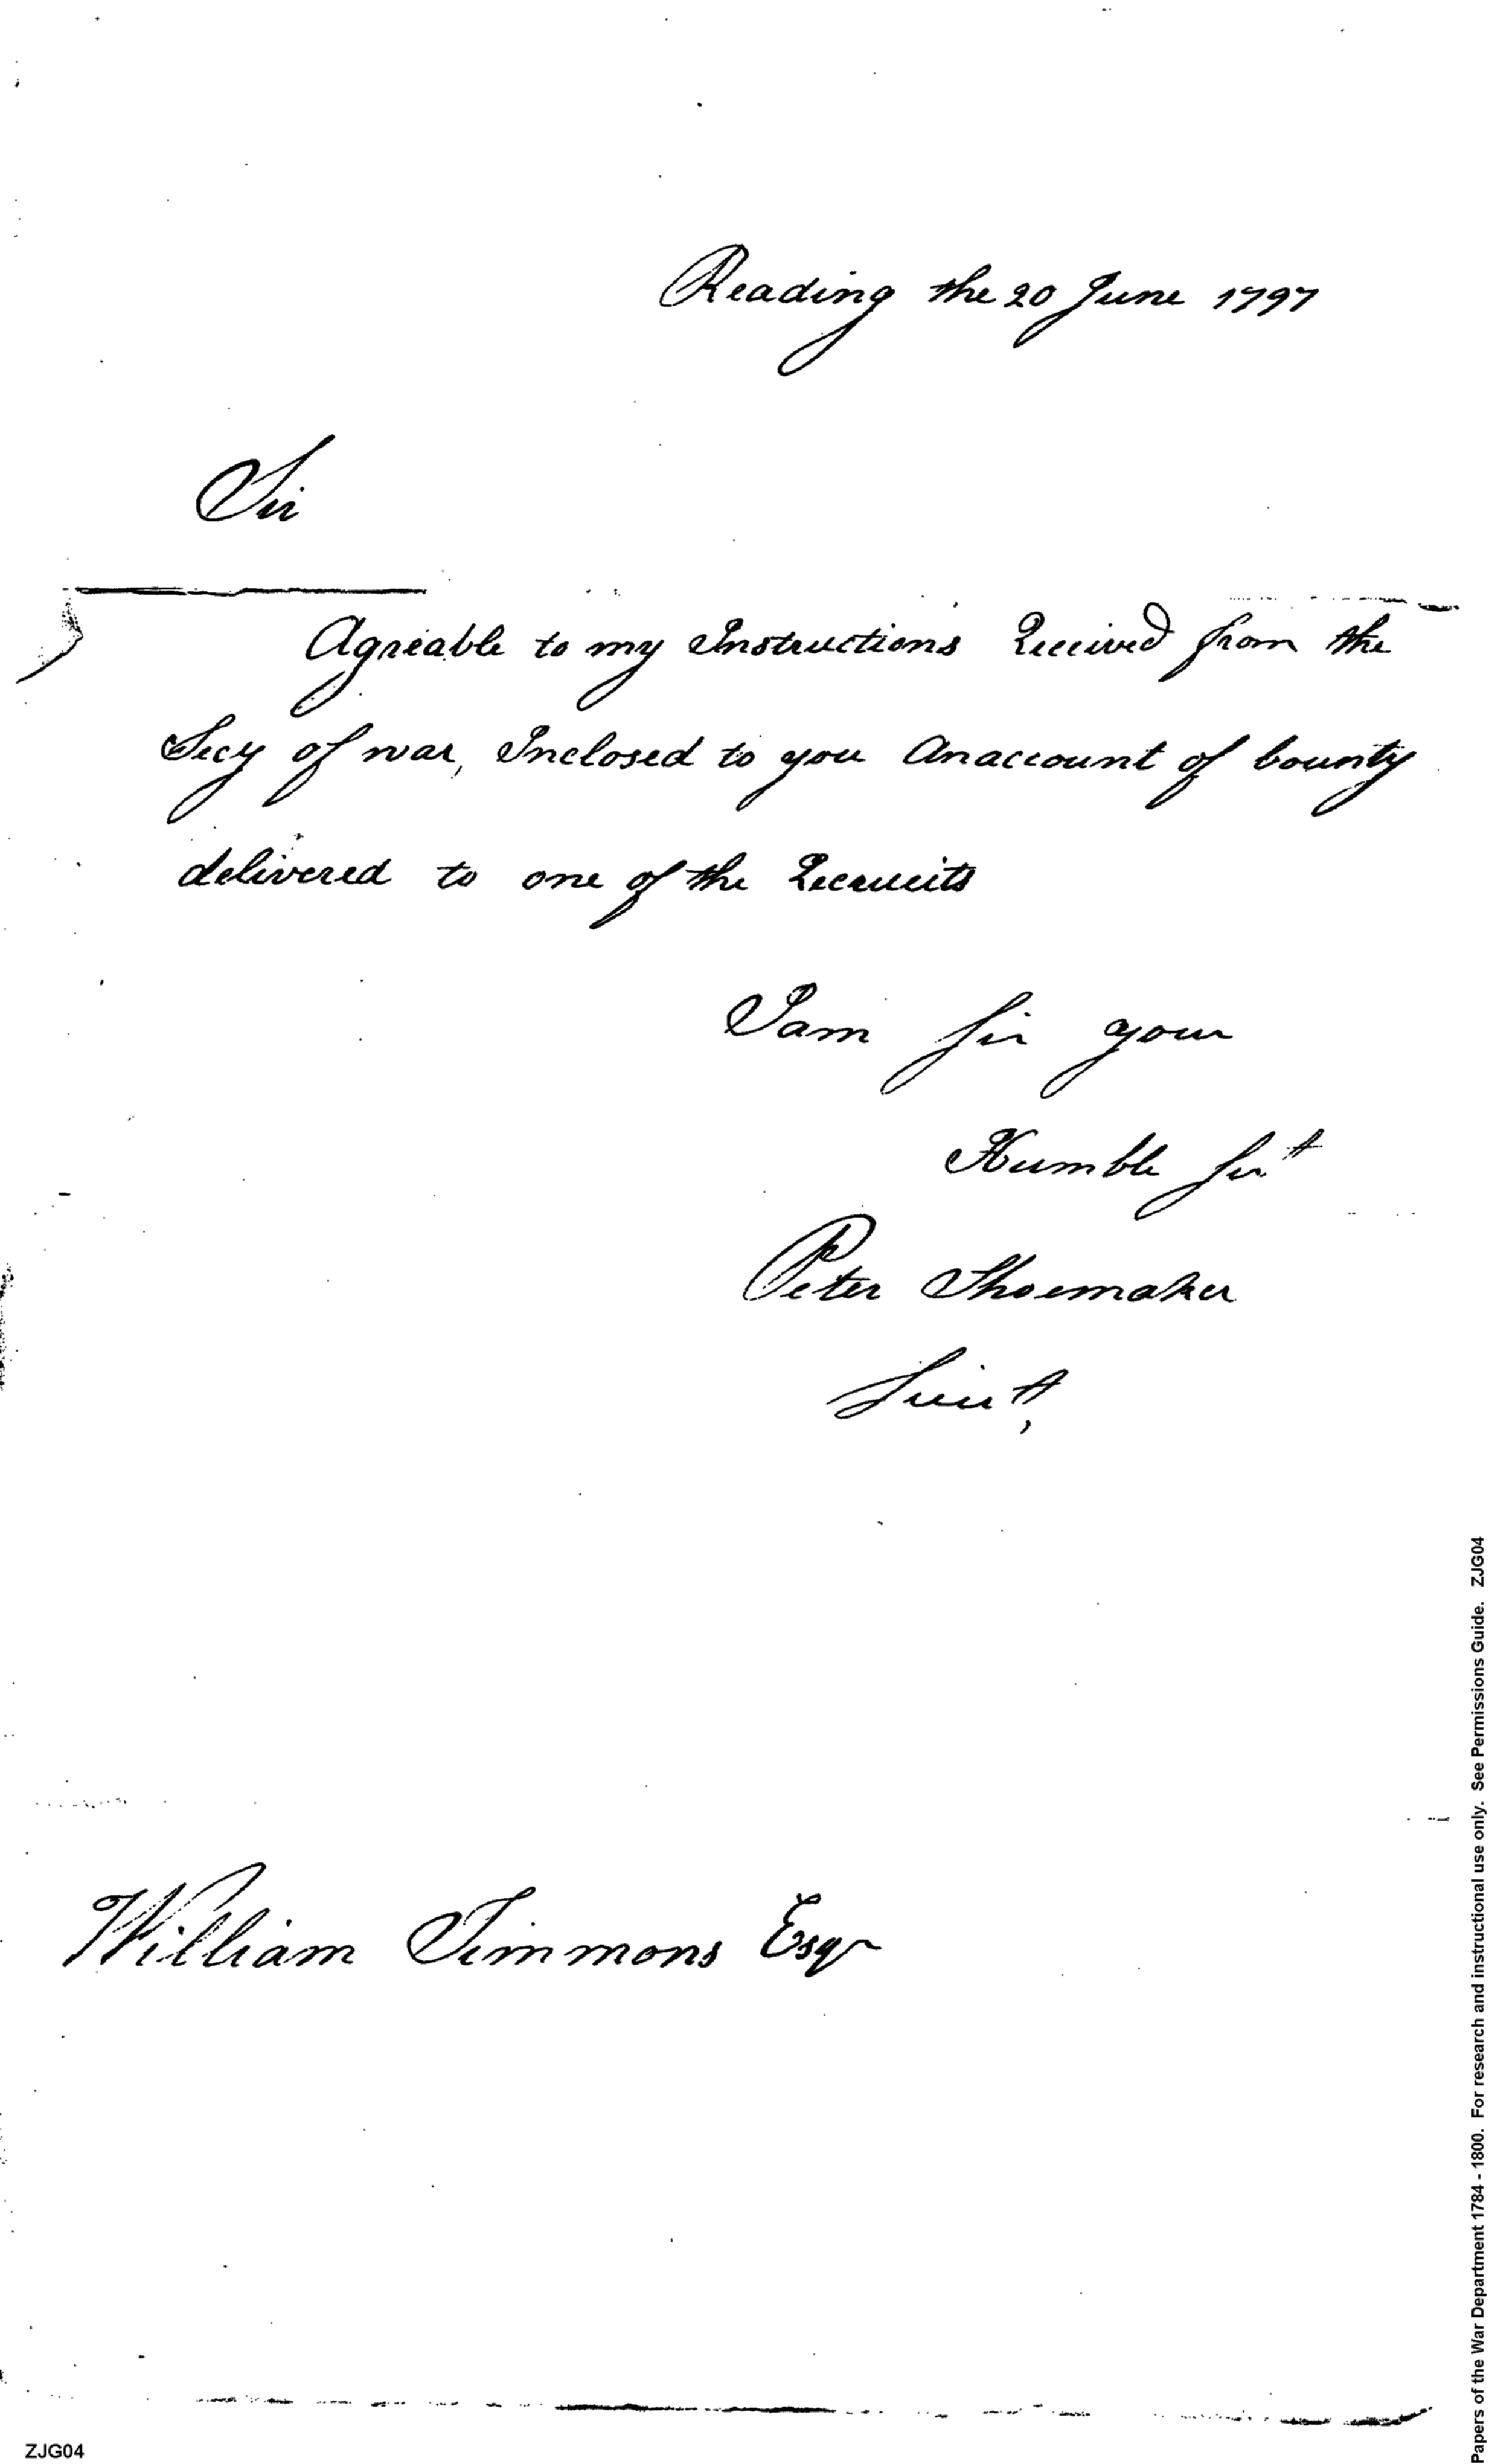 Reading the 20 June 1797
Sir
Agreable to my Instructions Received from the
Secy of war, Inclosed to you Anaccount of bounty
delivered to one of the Recruits
I am Sir your
Humble Sert
Peter Shoemaker
Lieut,
William Simmons Esqr
ZJG04
Papers of the War Department 1784 - 1800. For research and instructional use only. See Permissions Guide. ZJG04